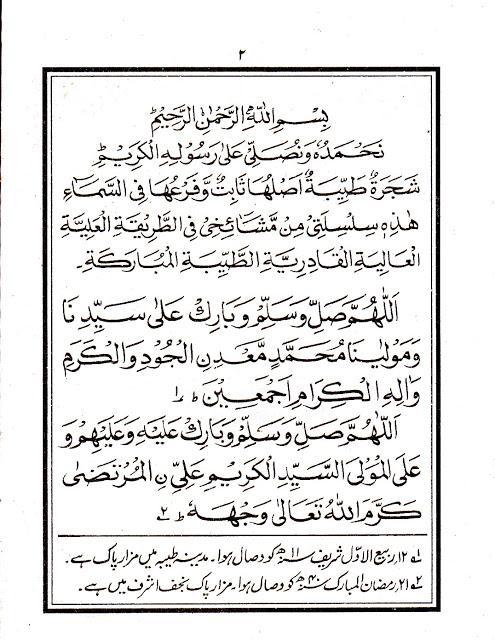 ۲
بِسْمِ اللهِ الرَّحْمٰنِ الرَّحِيْمِ
نَحْمَدُهٗ وَنُصَلِّيْ عَلٰى رَسُوْلِهِ الْكَرِيْمِ
شَجَرَةٌ طَيِّبَةٌ اَصْلُهَا ثَابِتٌ وَّفَرْعُهَا فِى السَّمَآءِ
هٰذِهٖ سِلْسِلَتِيْ مِنْ مَّشَائِخِيْ فِى الطَّرِيْقَةِ الْعَلِيَّةِ
الْعَالِيَةِ الْقَادِرِيَّةِ الطَّيِّبَةِ الْمُبَارَكَةِ۔
اَللّٰهُمَّ صَلِّ وَسَلِّمْ وَبَارِكْ عَلٰى سَيِّدِنَا
وَمَوْلٰينَا مُحَمَّدٍ مَّعْدِنِ الْجُوْدِ وَالْكَرَمِ
وَاٰلِهِ الْكِرَامِ اَجْمَعِيْنَ ؕ ۱
اَللّٰهُمَّ صَلِّ وَسَلِّمْ وَبَارِكْ عَلَيْهِ وَعَلَيْهِمْ وَ
عَلَى الْمَوْلَى السَّيِّدِ الْكَرِيْمِ عَلِيِّ نِ الْمُرْتَضٰى
كَرَّمَ اللهُ تَعَالٰى وَجْهَهٗ ؕ ۲
۱ ۱۲؍ ربیع الاوّل شریف ۱۱ھ کو وصال ہوا۔ مدینہ طیبہ میں مزار پاک ہے۔
۲ ۲۱؍ رمضان المبارک ۴۰ھ کو وصال ہوا۔ مزار پاک نجف اشرف میں ہے۔